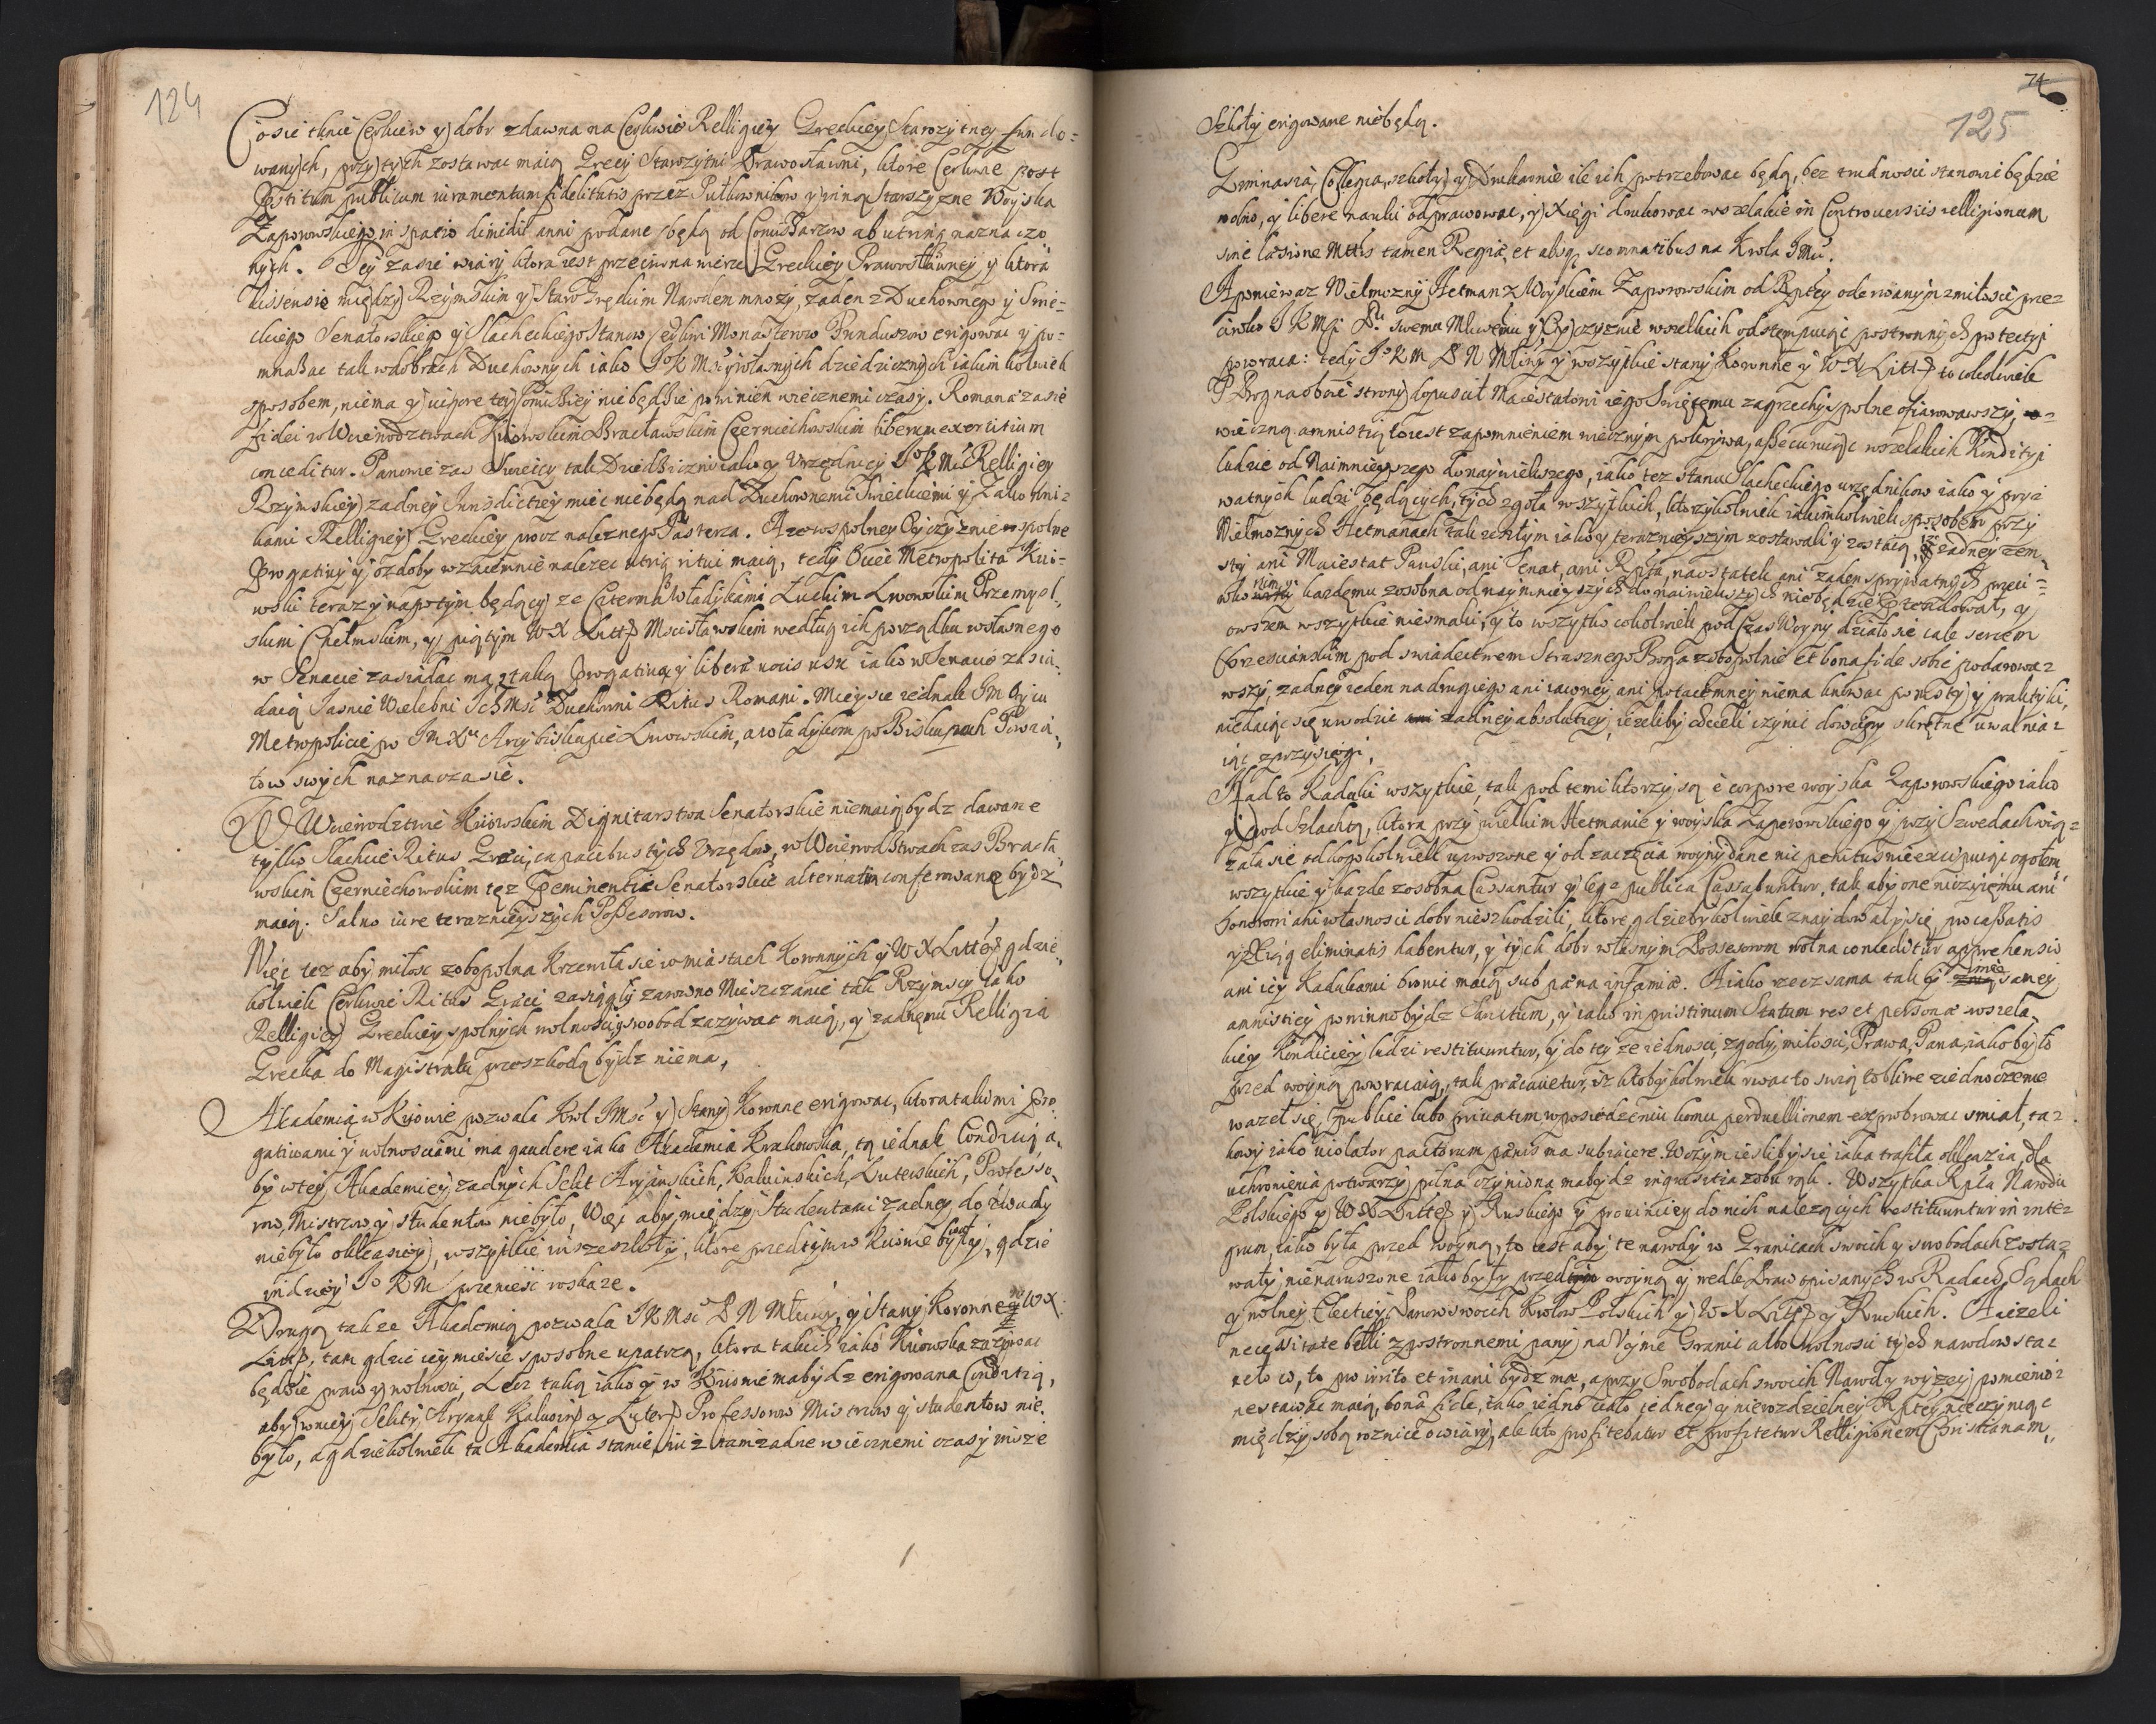 124
Cosie tknie Cerkiew y dobr zdawna na Cerkwie Relligiey Greckiey Starozytney fundo=
wanych, przy tych zostawac maią Grecy Starozytni Prawosławni, ktore Cerkwie post
Praestitum publicum iuramentum fidelitatis przez Pułkownikow y inną Starszyzne Woyska
Zaporowskiego in spatio dimidii anni podane będą od Comissarzow ab utrinq naznaczo
nych. Tey zasie wiary ktora iest przeciwna wierze Greckiey Prawosławney y ktora
dissensie między Rzymskim y StaroGreckim Narodem mnozy, zaden z Duchownego y Swie=
ckiego Senatorskiego y Slacheckiego Stanow Cerkwi Monasterow Funduszow erigowac y po=
mnażac tak wdobrach Duchownych iako JoKMsci y własnych dziedzicznych iakim kolwiek
sposobem, niema y vigore tey Comissiey niebędzie powinien wiecznemi czasy. Romanae zasie
fidei w Woiewodztwach Kiiowskim Bracławskim Czerniechowskim liberum exercitium
conceditur. Panowie zas Swieccy tak Dziedziczni iako y Vrzędnicy JoKMsci Relligiey
Rzymskiey zadney Iurisdictiey miec niebędą nad Duchownemi Swieckiemi y Zakonni=
kami Relligiey Greckiey procz naleznego Pasterza. A ze wspolney Oyczyznie spolne
Prerogatiwy y ozdoby wzaiemnie nalezec utriq ritui maią, tedy Ociec Metropolita Kiio=
wski teraz y napotym będący ze Czterma Władykami Luckim Lwowskim Przemysl
skim Chełmskim, y piątym WX Litt Mscisławskim według ich porządku własnego
w Senacie zasiadac ma z taką Prerogatiwą y libera vocis usu iako w Senacie zasia=
daią Jasnie Wielebni IchMsc Duchowni Ritus Romani. Mieysce iednak Im Oycu
Metropolicie po JmXu Arcybiskupie Lwowskim, a władykom po Biskupach Powia=
tow swych naznacza sie.
W Woiewodztwie Kiiowskim Dignitarstwa Senatorskie niemaią bydz dawane
tylko Slachcie Ritus Graeci, capacibus tych Vrzędow, w Woiewodstwach zas Bracła=
wskim Czerniechowskim tez Praeminentie Senatorskie alternatim conferowane bydz
maią. Salvo iure teraznieyszych Possesorow.
Więc tez aby miłosc zobopolna krzewiła sie w miastach Koronnych y WXLitt gdzie=
kolwiek Cerkwie Ritus Graeci zasięgły zarowno Mieszczanie tak Rzymscy iako
Relligiey Greckiey spolnych wolnosci y swobod zazywac maią, y zadnemu Relligia
Grecka do Magistratu przeszkodą bydz niema,
Akademią w Kiiowie pozwala Krol JMsc y Stany Koronne erigowac, ktora takiemi pre=
gatiwami y wolnosciami ma gaudere iako Akademia Krakowska, tą iednak Conditią a=
by w tey Akademiey zadnych Sekt Aryanskich, Kalwinskich, Luterskich, Professo=
row, Mistrzow y studentow niebyło, Więc aby między Studentami zadney do zwady
niebyło okkazyey, wszytkie insze szkoły, ktore przedtym w Kiiowie były, gdzie
indziey JoKM przeniesc roskaze.
Drugą takze Akademią pozwala JKMsc P N Młciwy, y Stany Koronne y WX
Litt, tam gdzie iey miesce sposobne upatrzą, ktora takich iako Kiiowska zazywac
będzie praw y wolnosci, Lecz taką iako y w Kiiowie ma bydz erigowana Conditią,
aby w niey Sekty Aryans Kalwins y Luters Professorow Mistrzow y studentow nie=
było, a gdziekolwiek ta Akademia stanie, iuz tam zadne wiecznemi czasy insze
74
125
Szkoły erigowane niebędą.
Gimnasia, Collegia, szkoły y Drukarnie ile ich potrzebowac będą, bez trudnosci stanowic będzie
wolno, y libere nauki odprawowac, y Xięgi drukowac wszelakie in Controversiis relligionum
sine laesione Mttis tamen Regiae, et absq scommatibus na Krola JMci.
A poniewaz Wielmozny Hetman z Woyskiem Zaporowskim od Rptey oderwanym z miłosci prze=
ciwko JKMsi Pu swemu Mlwemu y Oyczyznie wszelkich odstempuiąc postronnych protectyi
powraca: tedy JoKM P N Młciwy y wszytkie Stany Koronne y WX Litt to cokolwiek
P Bog na obie strony dopuscił Maiestatowi iego Swiętemu za grzechy spolne ofiarowawszy,
wieczną amnistią to iest zapomnieniem wiecznym pokrywa, assecuruiąc wszelakich Kondityi
ludzie od Naimnieyszego do naywiekszego, iako tez stanu Slacheckiego urzędnikow iako y pry=
watnych ludzi będących, tych zgoła wszytkich, ktorzykolwiek iakimkolwiek sposobem przy
Wielmoznych Hetmanach tak zeszłym iako y teraznieyszym zostawali y zostaią, iz zadney zem=
sty ani Maiestat Pański, ani Senat, ani Rpta, naostatek ani zaden sprywatnych przeci=
wko nim y kazdemu zosobna od naymnieyszych do naiwiekszych niebędzie praetendował, y
owszem wszytkie niesmaki, y to wszytko cokolwiek pod Czas Woyny działo sie całe sercem
Chrzescianskim pod swiadectwem Strasznego Boga zobopolnie et bona fide sobie podarowa=
wszy, zadney ieden na drugiego ani iawney ani potaiemney niema knowac pomsty y praktyki,
niedaiąc się uwodzic zadney absolutiey, iezeliby chcieli czynic dowcipy skrętne uwalnia=
iąc z przysięgi,
Nad to Kaduki wszytkie, tak pod temi ktorzy są è corpore woyska Zaporowskiego iako
y pod Szlachtą, ktora przy wielkim Hetmanie y woyska Zaporowskiego y przy Szwedach wią=
zała sie od kogokolwiek uproszone y od zaczęcia woyny dane nic penitus nie excypuiąc ogołem
wszytkie y kazde zosobna Cassantur y lege publica Cassabuntur, tak aby one niczyiemu ani
honorowi ani własnosci dobr nieszkodzili, ktore gdziebykolwiek znaydowały się pro cassatis
y z Xiąg eliminatis habentur, y tych dobr własnym Possessorom wolna conceditur apprehensio
ani iey Kadukami bronic maią sub paena infamiae. A iako rzecz sama tak y imie samey
amnistiey powinno bydz Sanctum, y iako in pristinum Statum res et personae wszela=
kiey Kondiciey ludzi restituuntur, y do tey ze iednosci, zgody, miłosci, Prawa, Pana, iako było
przed woyną powracaią, tak praecavetur, iz ktobykolwiek rwac to swięte zobliwe ziednoczenie
wazeł się, publice lubo privatim, w posiedzeniu komu perduellionem exprobrowac smiał, ta=
kowy iako violator pactorum paenis ma subiacere. W czym iesliby sie iaka trafiła okkazia, dla
uchronienia potwarzy pilna czyniona ma bydz inquisitia z obu rąk. Wszytka Rpta Narodu
Polskiego y WX Litt y Ruskiego y provinciey do nich nalezących restituuntur in inte=
grum, iako była przed woyną, to iest aby te narody w Granicach swoich y swobodach zosta=
wały nienaruszone iako były przed woyną y wedle Praw opisanych w Radach, Sądach
y wolney Electiey Panow swoich Krolow Polskich y WX Litt y Ruskich. A iezeli
necessitate belli z postronnemi pany na Vymę Granic albo wolnosci tych narodow sta=
neło co, to pro irrito et inani bydz ma, a przy Swobodach swoich Narody wyzey pomienio=
ne stawac maią, bonâ fide, iako iedno ciało iedney y nierozdzielney Rptey nieczyniąc
między sobą roznice o wiary, ale kto profitebatur et profitetur Relligionem Christianam,